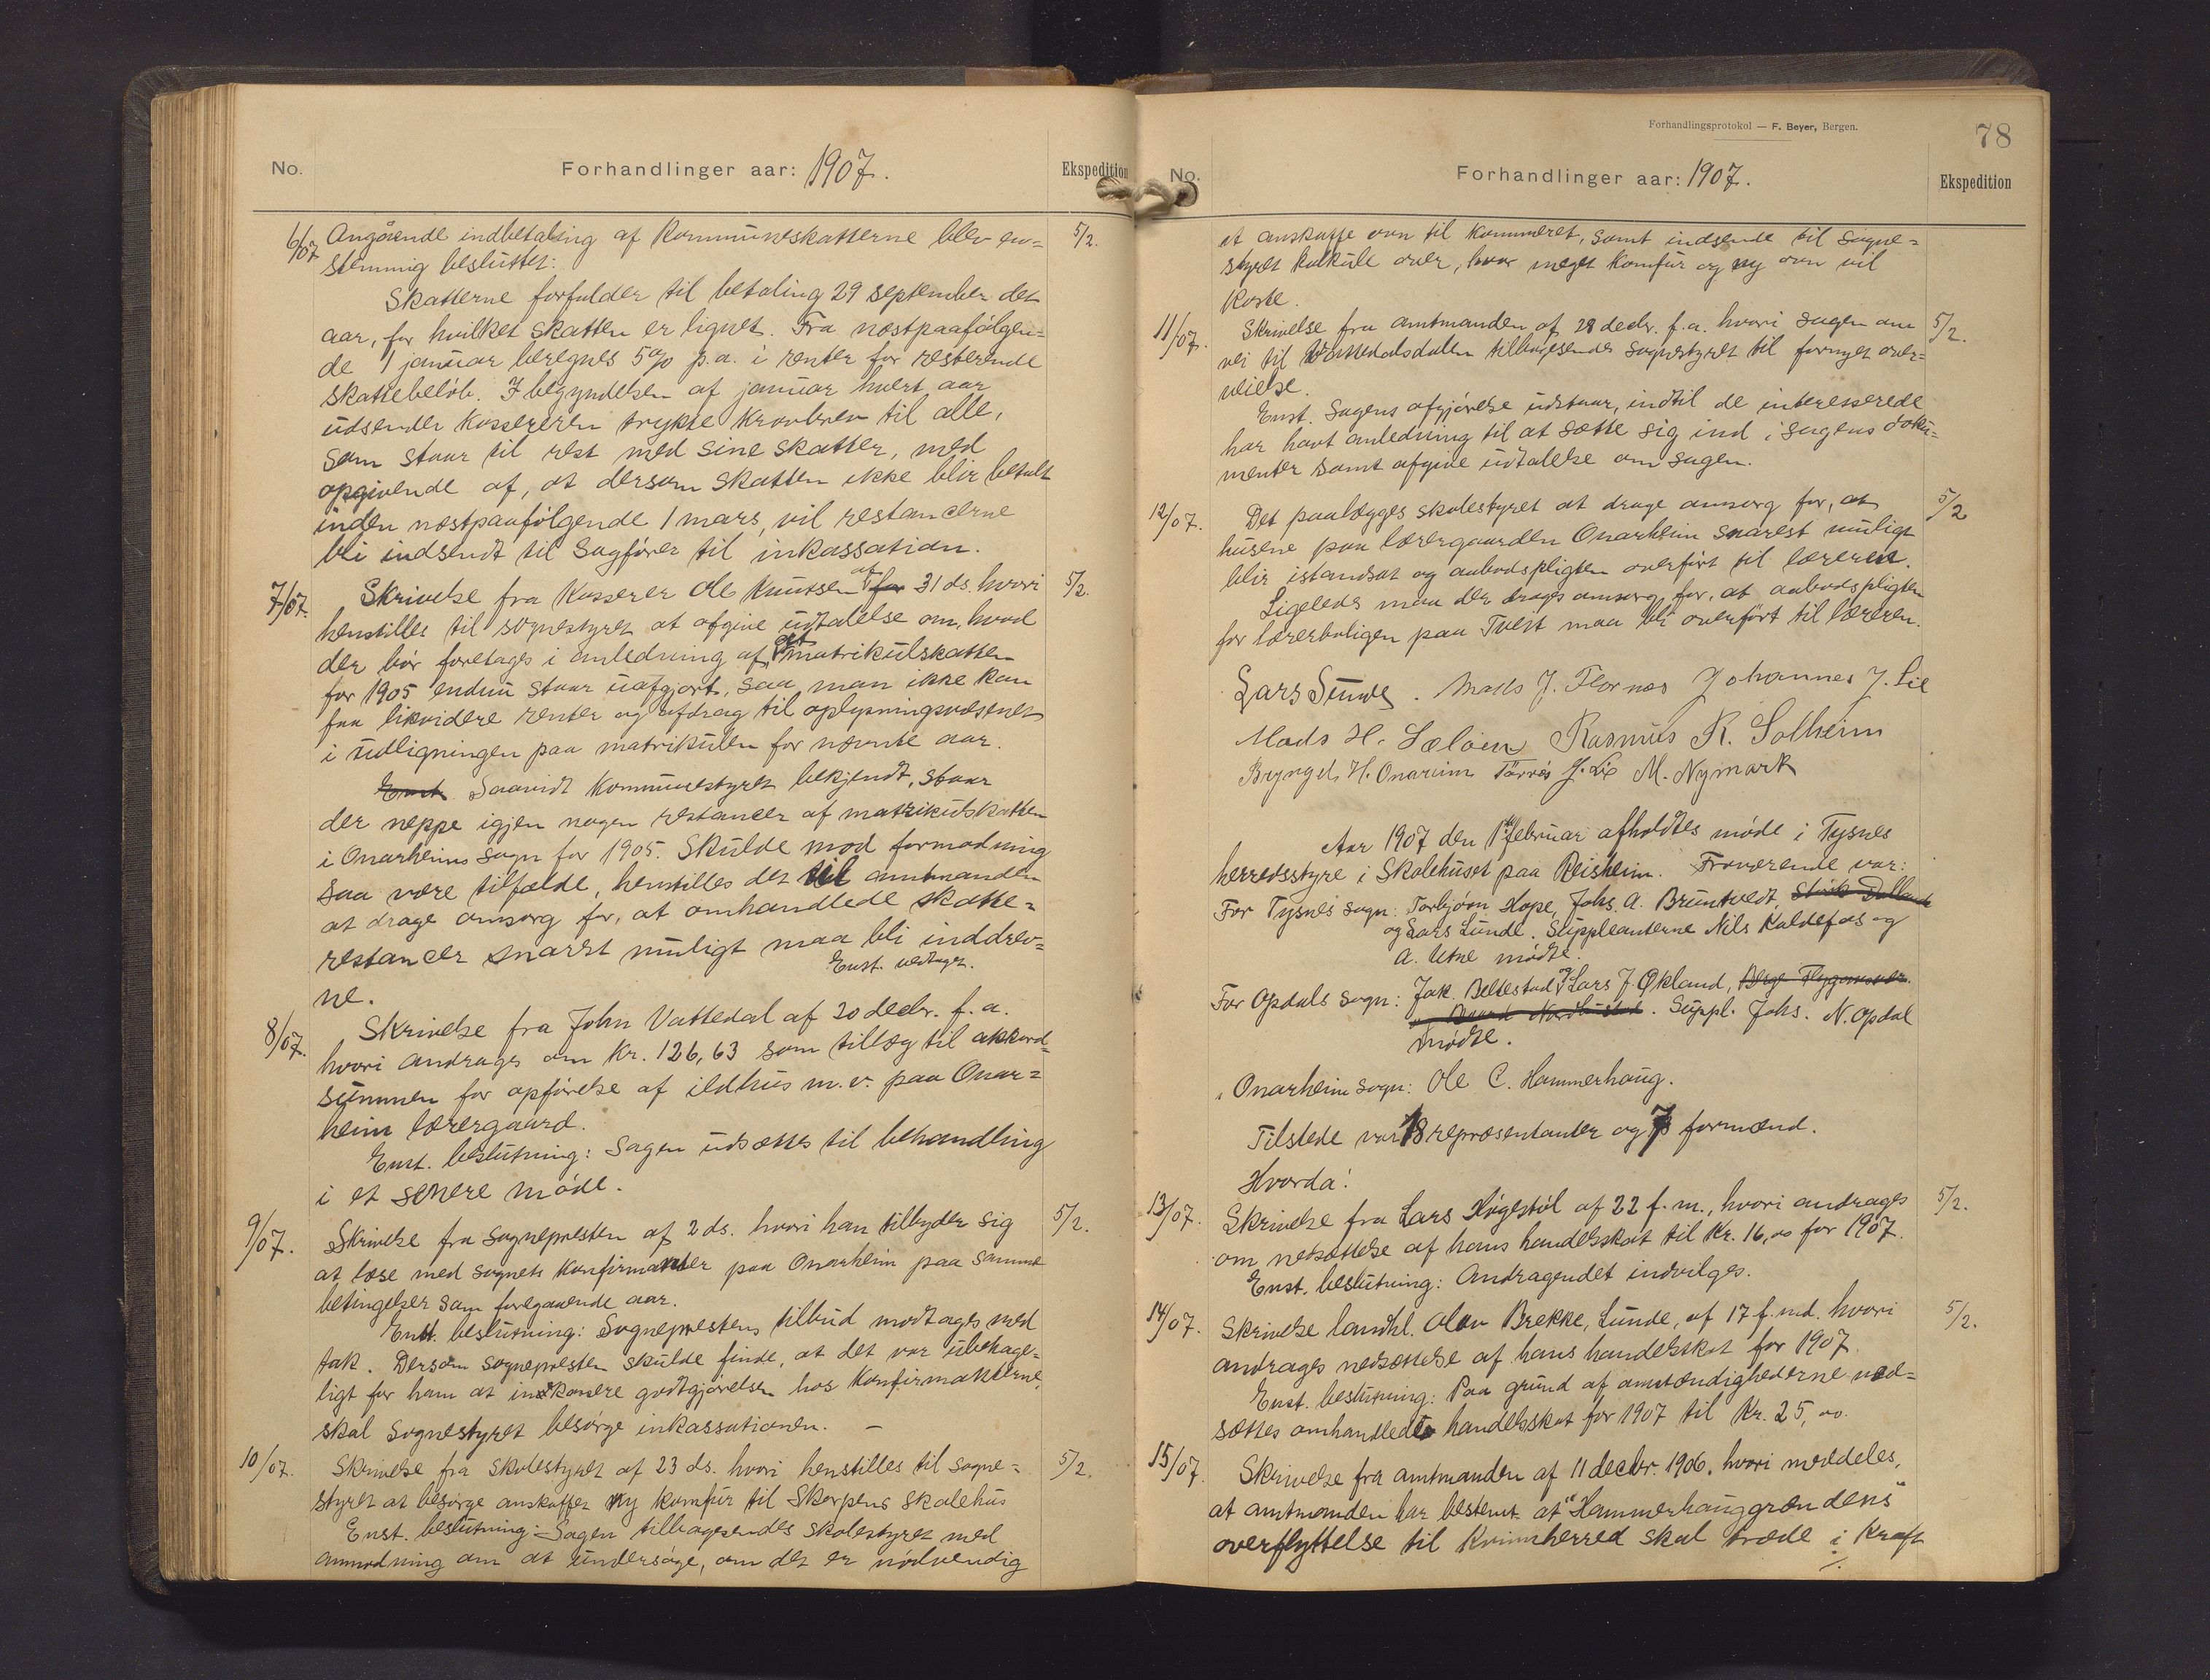 No. Forhandlinger aar: 1907. Ekspedition
6/07 Angående indbetaling af Kommuneskatterne blev en= 5/2.
stemmig besluttet:
Skatterne forfalder til betaling 29 september det
aar, for hvilket skatten er lignet. Fra næstpaafølgen=
de 1 januar beregnes 5% p.a. i renter for resterende
skattebeløb. I begyndelsen af januar hvert aar
udsender kassereren trykte kravbrev til alle,
som staar til rest med sine skatter, med
opgivende af, at dersom skatten ikke blir betalt
inden næstpaafølgende 1 mars, vil restancerne
bli indsendt til Sagfører til inkassation.
7/07. Skrivelse fra Kasserer Ole Knutsen af for 31 ds. hvori 5/2.
henstilles til sognestyret at afgive udtalelse om, hvad
der bør foretages i anledning af, at matrikulskatten
for 1905 endnu staar uafgjort, saa man ikke kan
faa likvidere renter og afdrag til oplysningsvæsenet
i udligningen paa matrikulen for nævnte aar.
Enst. Saavidt Kommunestyret bekjendt, staar
der neppe igjen nogen restancer af matrikulskatten
i Onarheims sogn for 1905. Skulde mod formodning
saa være tilfælde, henstilles det til amtmanden
at drage omsorg for, at omhandlede skatte=
restancer snarest muligt maa bli inddrev=
ne. Enst. vedtaget.
8/07. Skrivelse fra John Vattedal af 20 decbr. f. a.
hvori andrages om Kr. 126,63 som tillæg til akkord=
summen for opførelse af ildhus m. v. paa Onar=
heim lærergaard.
Enst. beslutning: Sagen udsættes til behandling
i et senere møde.
9/07. Skrivelse fra sognepresten af 2 ds. hvori han tilbyder sig 5/2.
at læse med sognets konfirmanter paa Onarheim paa samme
betingelser som foregaaende aar.
Enst. beslutning: Sogneprestens tilbud modtages med
tak. Dersom sognepresten skulde finde, at det var ubehage=
ligt for ham at indkassere godtgjørelsen hos Konfirmanterne,
skal Sognestyret besørge inkassationen. –
10/07. Skrivelse fra Skolestyret af 23 ds. hvori henstilles til sogne= 5/2.
styret at besørge anskaffet ny komfur til Skorpens skolehus
Enst. beslutning: Sagen tilbagesendes skolestyret med
anmodning om at undersøge, om det er nødvendig
Forhandlingsprotokol — F. Beyer, Bergen.
78
No. Forhandlinger aar: 1907. Ekspedition
at anskaffe ovn til kammeret, samt indsende til sogne=
styret kalkule over, hvor meget komfur og ny ovn vil
koste.
11/07. Skrivelse fra amtmanden af 28 decbr. f. a. hvori sagen om 5/2.
vei til Vattedalsdalen tilbagesendes sognestyret til fornyet over=
veielse.
Enst. Sagens afgjørelse udstaar, indtil de interesserede
har havt anledning til at sætte sig ind i sagens doku=
menter samt afgive udtalelse om sagen.
12/07. Det paalægges skolestyret at drage omsorg for, at 5/2
husene paa lærergaarden Onarheim snarest muligt
blir istandsat og aabodspligten overført til læreren.
Ligeledes maa der drages omsorg for, at aabodspligten
for lærerboligen paa Tveit maa bli overført til læreren.
Lars Sunde. Mads J. Flornæs Johannes J. Lie
Mads H. Sæløen Rasmus R. Solheim
Bryngel H. Onareim Tørres J. Lie M. Nymark
Aar 1907 den 1ste februar afholdtes møde i Tysnes
herredsstyre i Skolehuset paa Reisheim. Fraværende var:
For Tysnes sogn: Torbjørn Hope, Johs. A. Bruntvedt,
og Lars Lunde. Suppleanterne Nils Kaldefos og
A. Utne mødte.
For Opdals sogn: Jak. Beltestad og Lars J. Økland,
Suppl. Johs. N. Opdal
mødte.
" Onarheim sogn: Ole C. Hammerhaug.
Tilstede var 18 repræsentanter og 7 formænd.
Hvorda:
13/07. Skrivelse fra Lars Høgestøl af 22 f. m., hvori andrages 5/2.
om nedsættelse af hans handelsskat til Kr. 16,00 for 1907.
Enst. beslutning: Andragendet indvilges.
14/07. Skrivelse landhl. Olav Brekke, Lunde, af 17 f. md. hvori 5/2.
andrages nedsættelse af hans handelsskat for 1907.
Enst. beslutning: Paa grund af omstændighederne ned=
sættes omhandlede handelsskat for 1907 til Kr. 25,00.
15/07. Skrivelse fra amtmanden af 11 decbr. 1906, hvori meddeles,
at amtmanden har bestemt at "Hammerhauggrændens"
overflyttelse til Kvinnherred skal træde i kraft